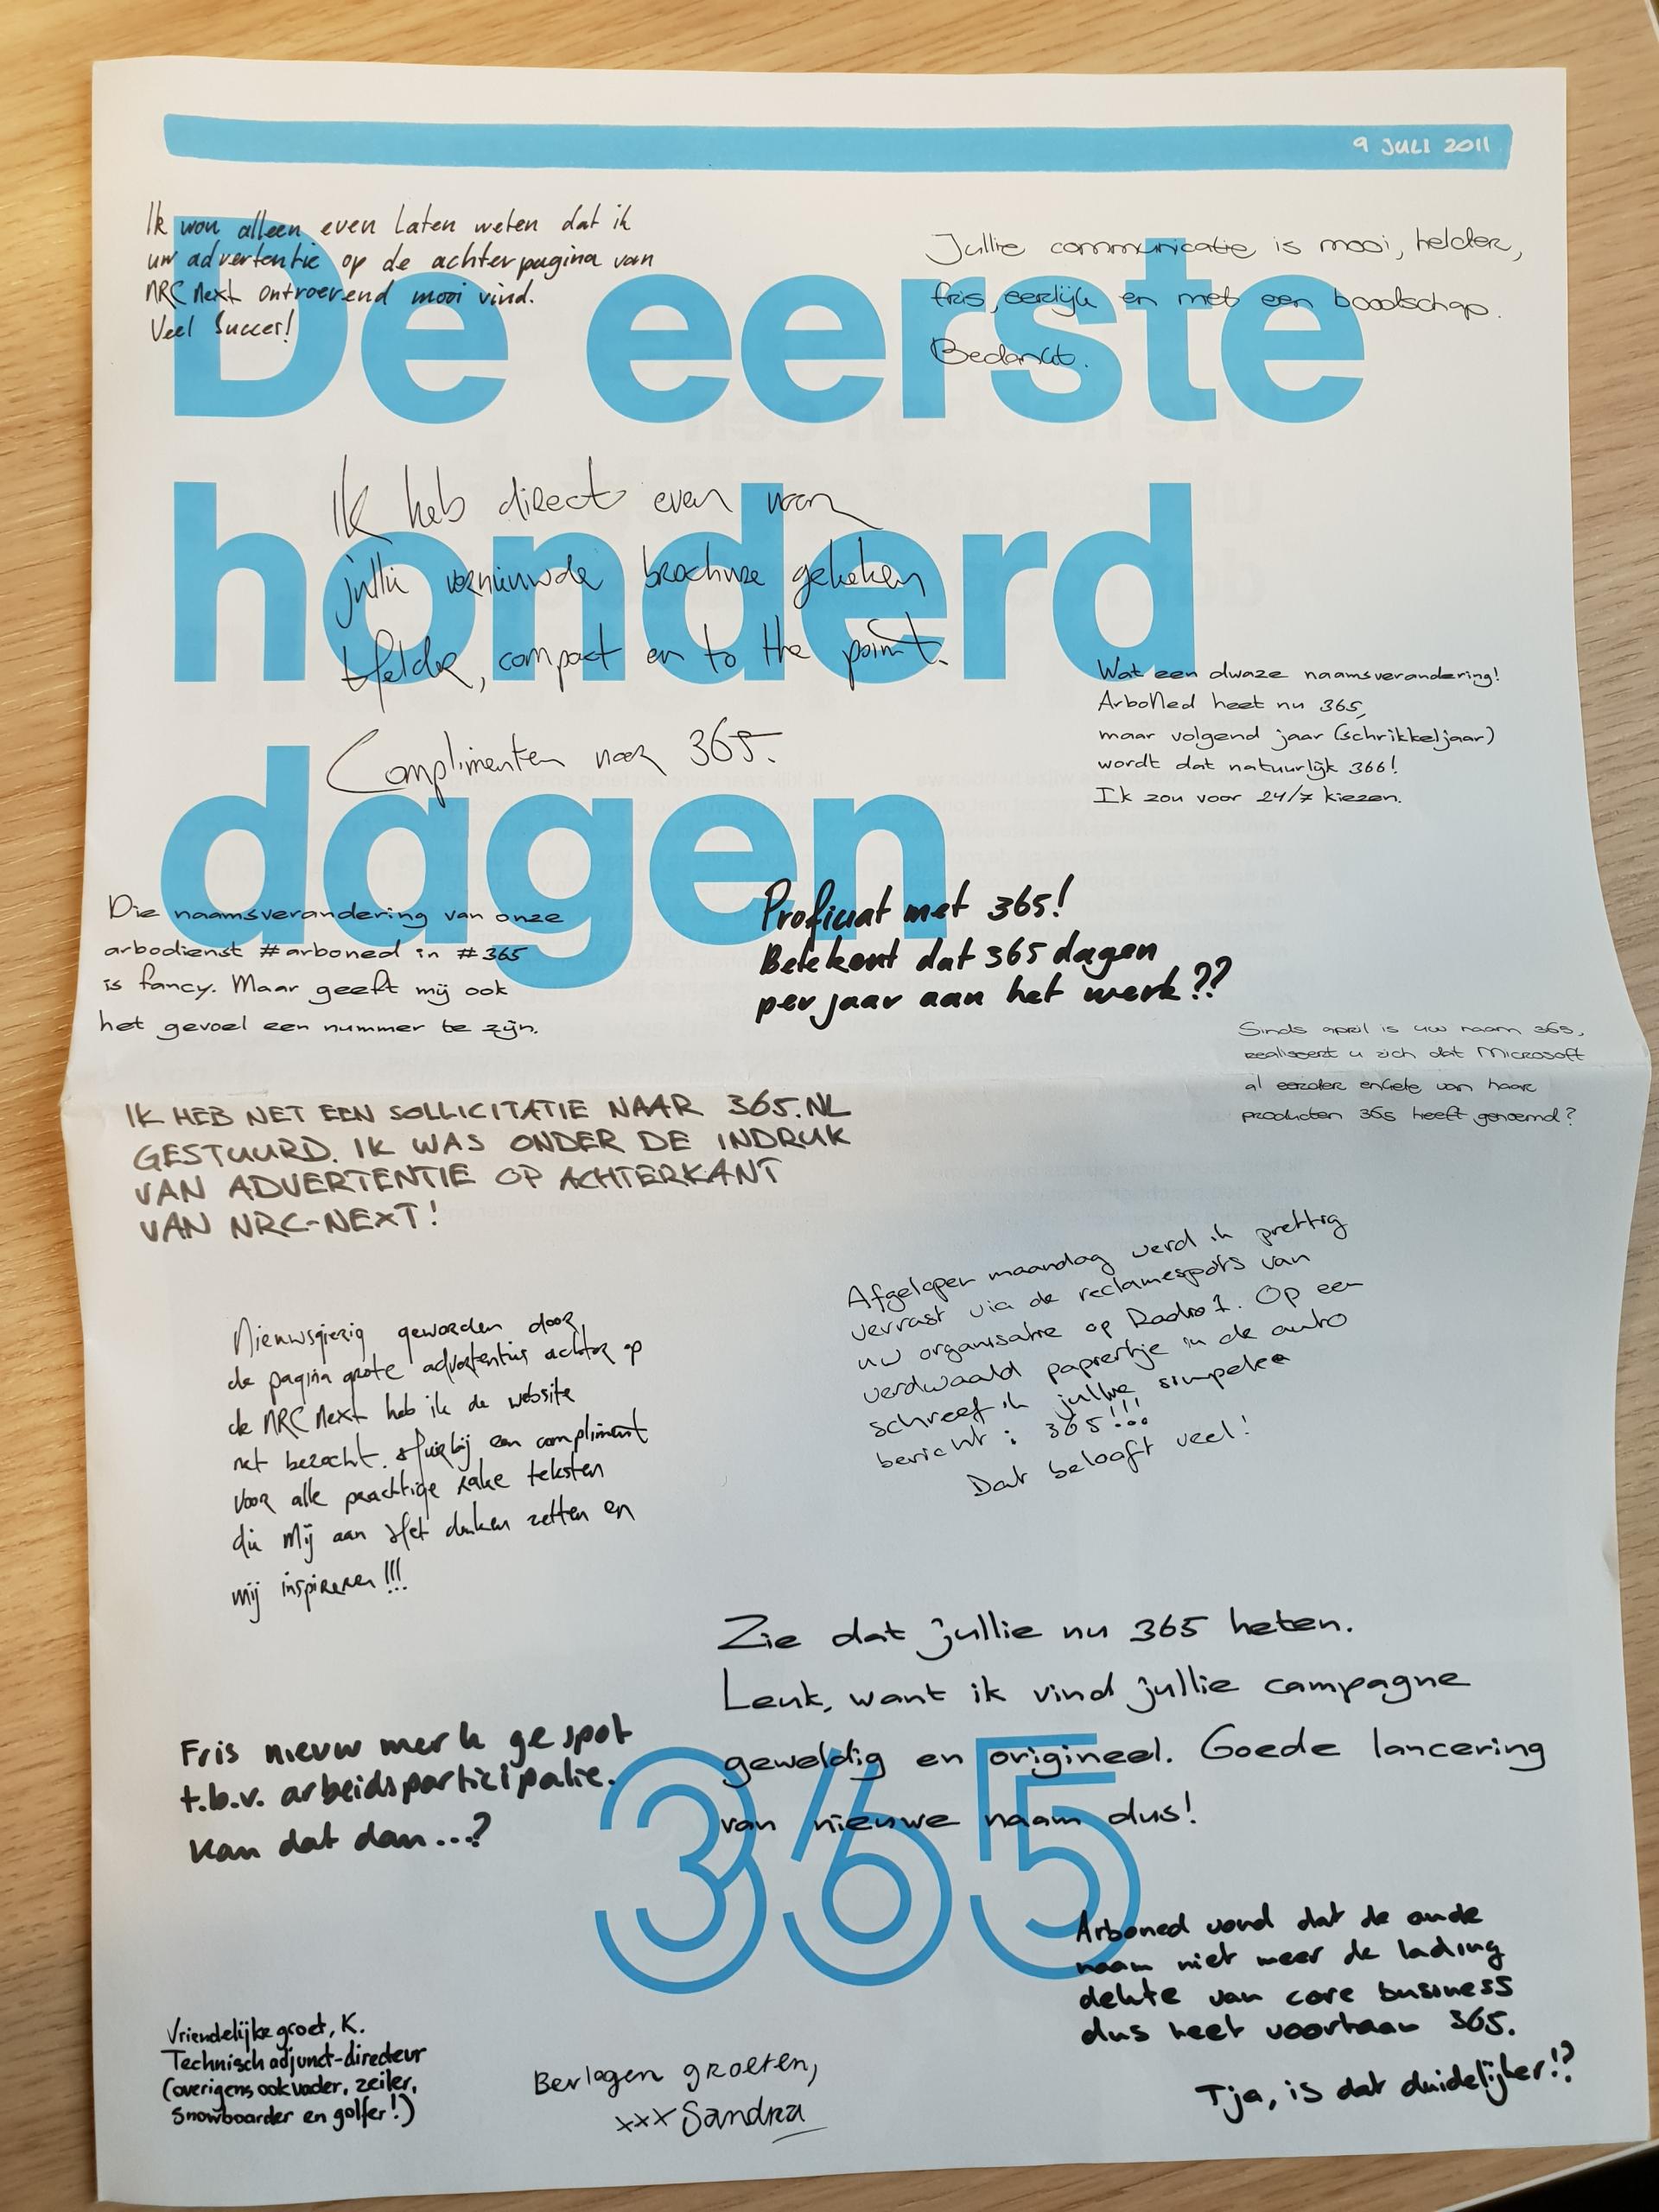 9 JULI 2011
Ik wou alleen even Laten weten dat ik
uw advertentie op de achterpagina van
NRC Next ontroerend mooi vind.
Veel Succes!
Jullie communicatie is mooi, helder,
fris, eerlijk en met een boodschap.
Bedankt.
De eerste
honderd
dagen
Ik heb direct even van
jullie vernieuwde brochure gekeken
Helder, compact en to the point.
Complimenten naar 365.
Wat een dwaze naamsverandering!
ArboNed heet nu 365,
maar volgend jaar (schrikkeljaar)
wordt dat natuurlijk 366!
Ik zou voor 24/7 kiezen.
Die naamsverandering van onze
arbodienst #arboned in #365
is fancy. Maar geeft mij ook
het gevoel een nummer te zijn.
Proficiat met 365!
Betekent dat 365 dagen
per jaar aan het werk??
Sinds april is uw naam 365,
realiseert u zich dat Microsoft
al eerder enkele van haar
producten 365 heeft genoemd?
IK HEB NET EEN SOLLICITATIE NAAR 365.NL
GESTUURD. IK WAS ONDER DE INDRUK
VAN ADVERTENTIE OP ACHTERKANT
VAN NRC-NEXT!
Afgelopen maandag werd ik prettig
verrast via de reclamespots van
uw organisatie op Radio 1. Op een
verdwaald papiertje in de auto
schreef ik jullie simpele
bericht: 365!!!
Dat belooft veel!
Nieuwsgierig geworden door
de pagina grote advertenties achter op
de NRC Next heb ik de website
net bezocht. Hierbij een compliment
voor alle prachtige rake teksten
die Mij aan Het denken zetten en
mij inspireren!!!
Zie dat jullie nu 365 heten.
Leuk, want ik vind jullie campagne
geweldig en origineel. Goede lancering
van nieuwe naam dus!
Fris nieuw merk gespot
t.b.v. arbeidsparticipatie.
Kan dat dan...?
365
Arboned vond dat de oude
naam niet meer de lading
dekte van core business
dus heet voortaan 365.
Tja, is dat duidelijker!?
Vriendelijke groet, K.
Technisch adjunct-directeur
(overigens ook vader, zeiler,
snowboarder en golfer!)
Bevlogen groeten,
xxx Sandra